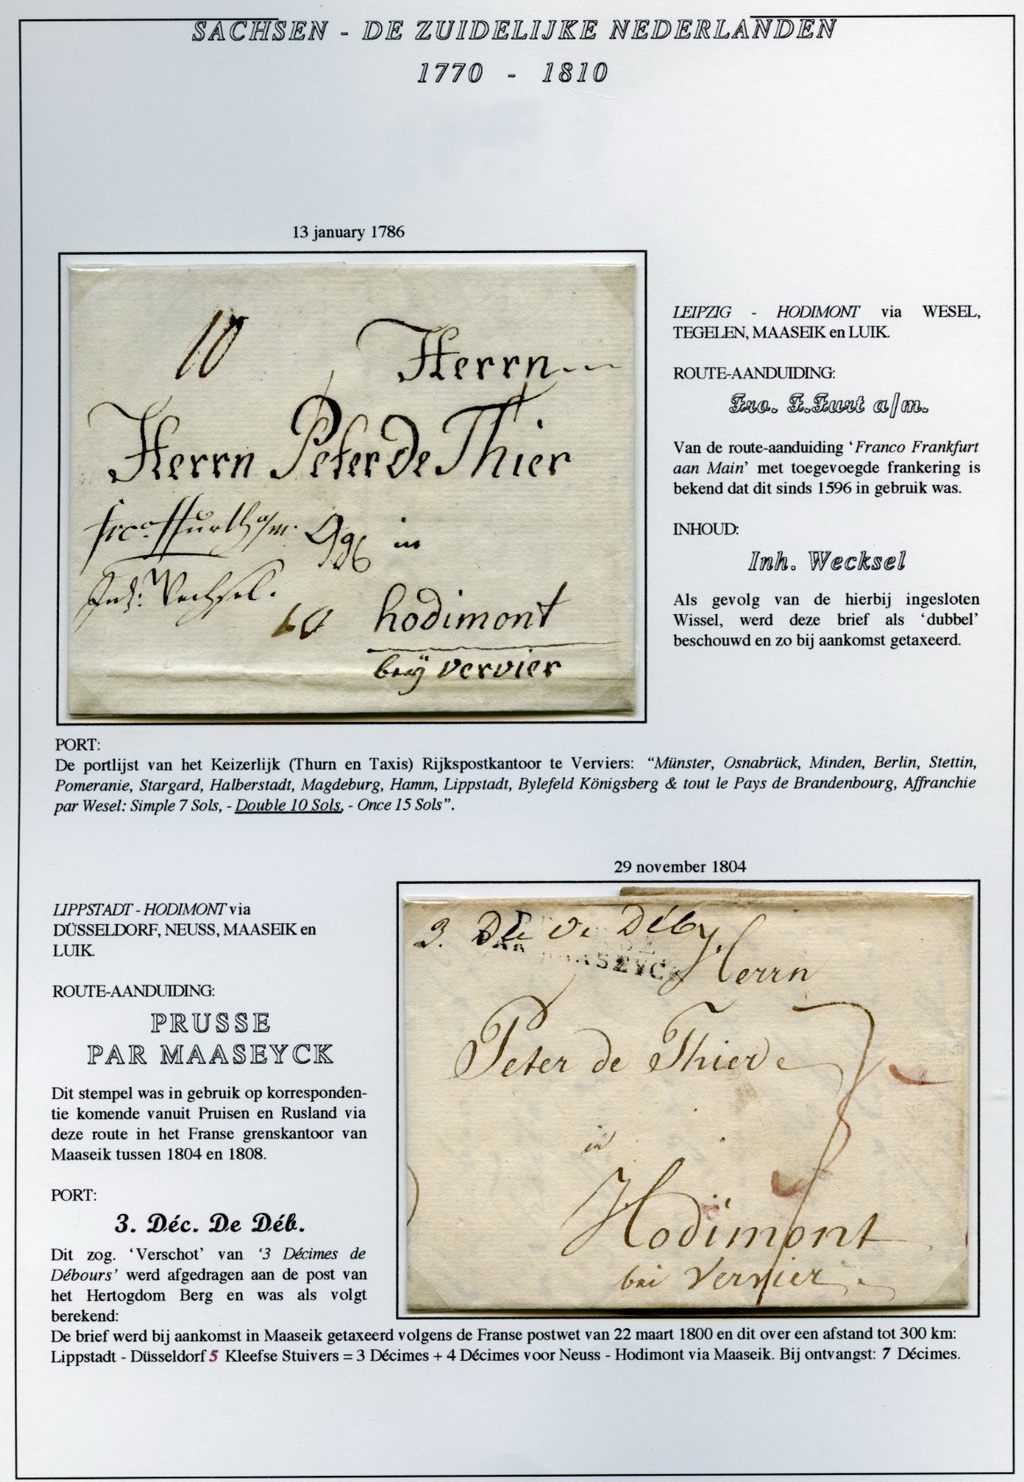 SACHSEN - DE ZUIDELIJKE NEDERLANDEN
1770 - 1810
13 january 1786
10
Herrn
Herrn Peter De Thier
in
Inh: Wechsel.
10
hodimont
beÿ vervier
LEIPZIG - HODIMONT via WESEL,
TEGELEN, MAASEIK en LUIK.
ROUTE-AANDUIDING:
Fro. F.Furt a/m.
Van de route-aanduiding ‘Franco Frankfurt
aan Main’ met toegevoegde frankering is
bekend dat dit sinds 1596 in gebruik was.
INHOUD:
Inh. Wecksel
Als gevolg van de hierbij ingesloten
Wissel, werd deze brief als ‘dubbel’
beschouwd en zo bij aankomst getaxeerd.
PORT:
De portlijst van het Keizerlijk (Thurn en Taxis) Rijkspostkantoor te Verviers: “Münster, Osnabrück, Minden, Berlin, Stettin,
Pomeranie, Stargard, Halberstadt, Magdeburg, Hamm, Lippstadt, Bylefeld Königsberg & tout le Pays de Brandenbourg, Affranchie
par Wesel: Simple 7 Sols, - Double 10 Sols, - Once 15 Sols”.
29 november 1804
LIPPSTADT - HODIMONT via
DÜSSELDORF, NEUSS, MAASEIK en
LUIK.
ROUTE-AANDUIDING:
PRUSSE
PAR MAASEYCK
Dit stempel was in gebruik op koresponden-
tie komende vanuit Pruisen en Rusland via
deze route in het Franse grenskantoor van
Maaseik tussen 1804 en 1808.
PORT:
3. Déc. De Déb.
Dit zog. ‘Verschot’ van ‘3 Décimes de
Débours’ werd afgedragen aan de post van
het Hertogdom Berg en was als volgt
berekend:
De brief werd bij aankomst in Maaseik getaxeerd volgens de Franse postwet van 22 maart 1800 en dit over een afstand tot 300 km:
Lippstadt - Düsseldorf 5 Kleefse Stuivers = 3 Décimes + 4 Décimes voor Neuss - Hodimont via Maaseik. Bij ontvangst: 7 Décimes.
PAR MAASEYCK
Herrn
Peter de Thier
in
Hodimont
bei Vervier